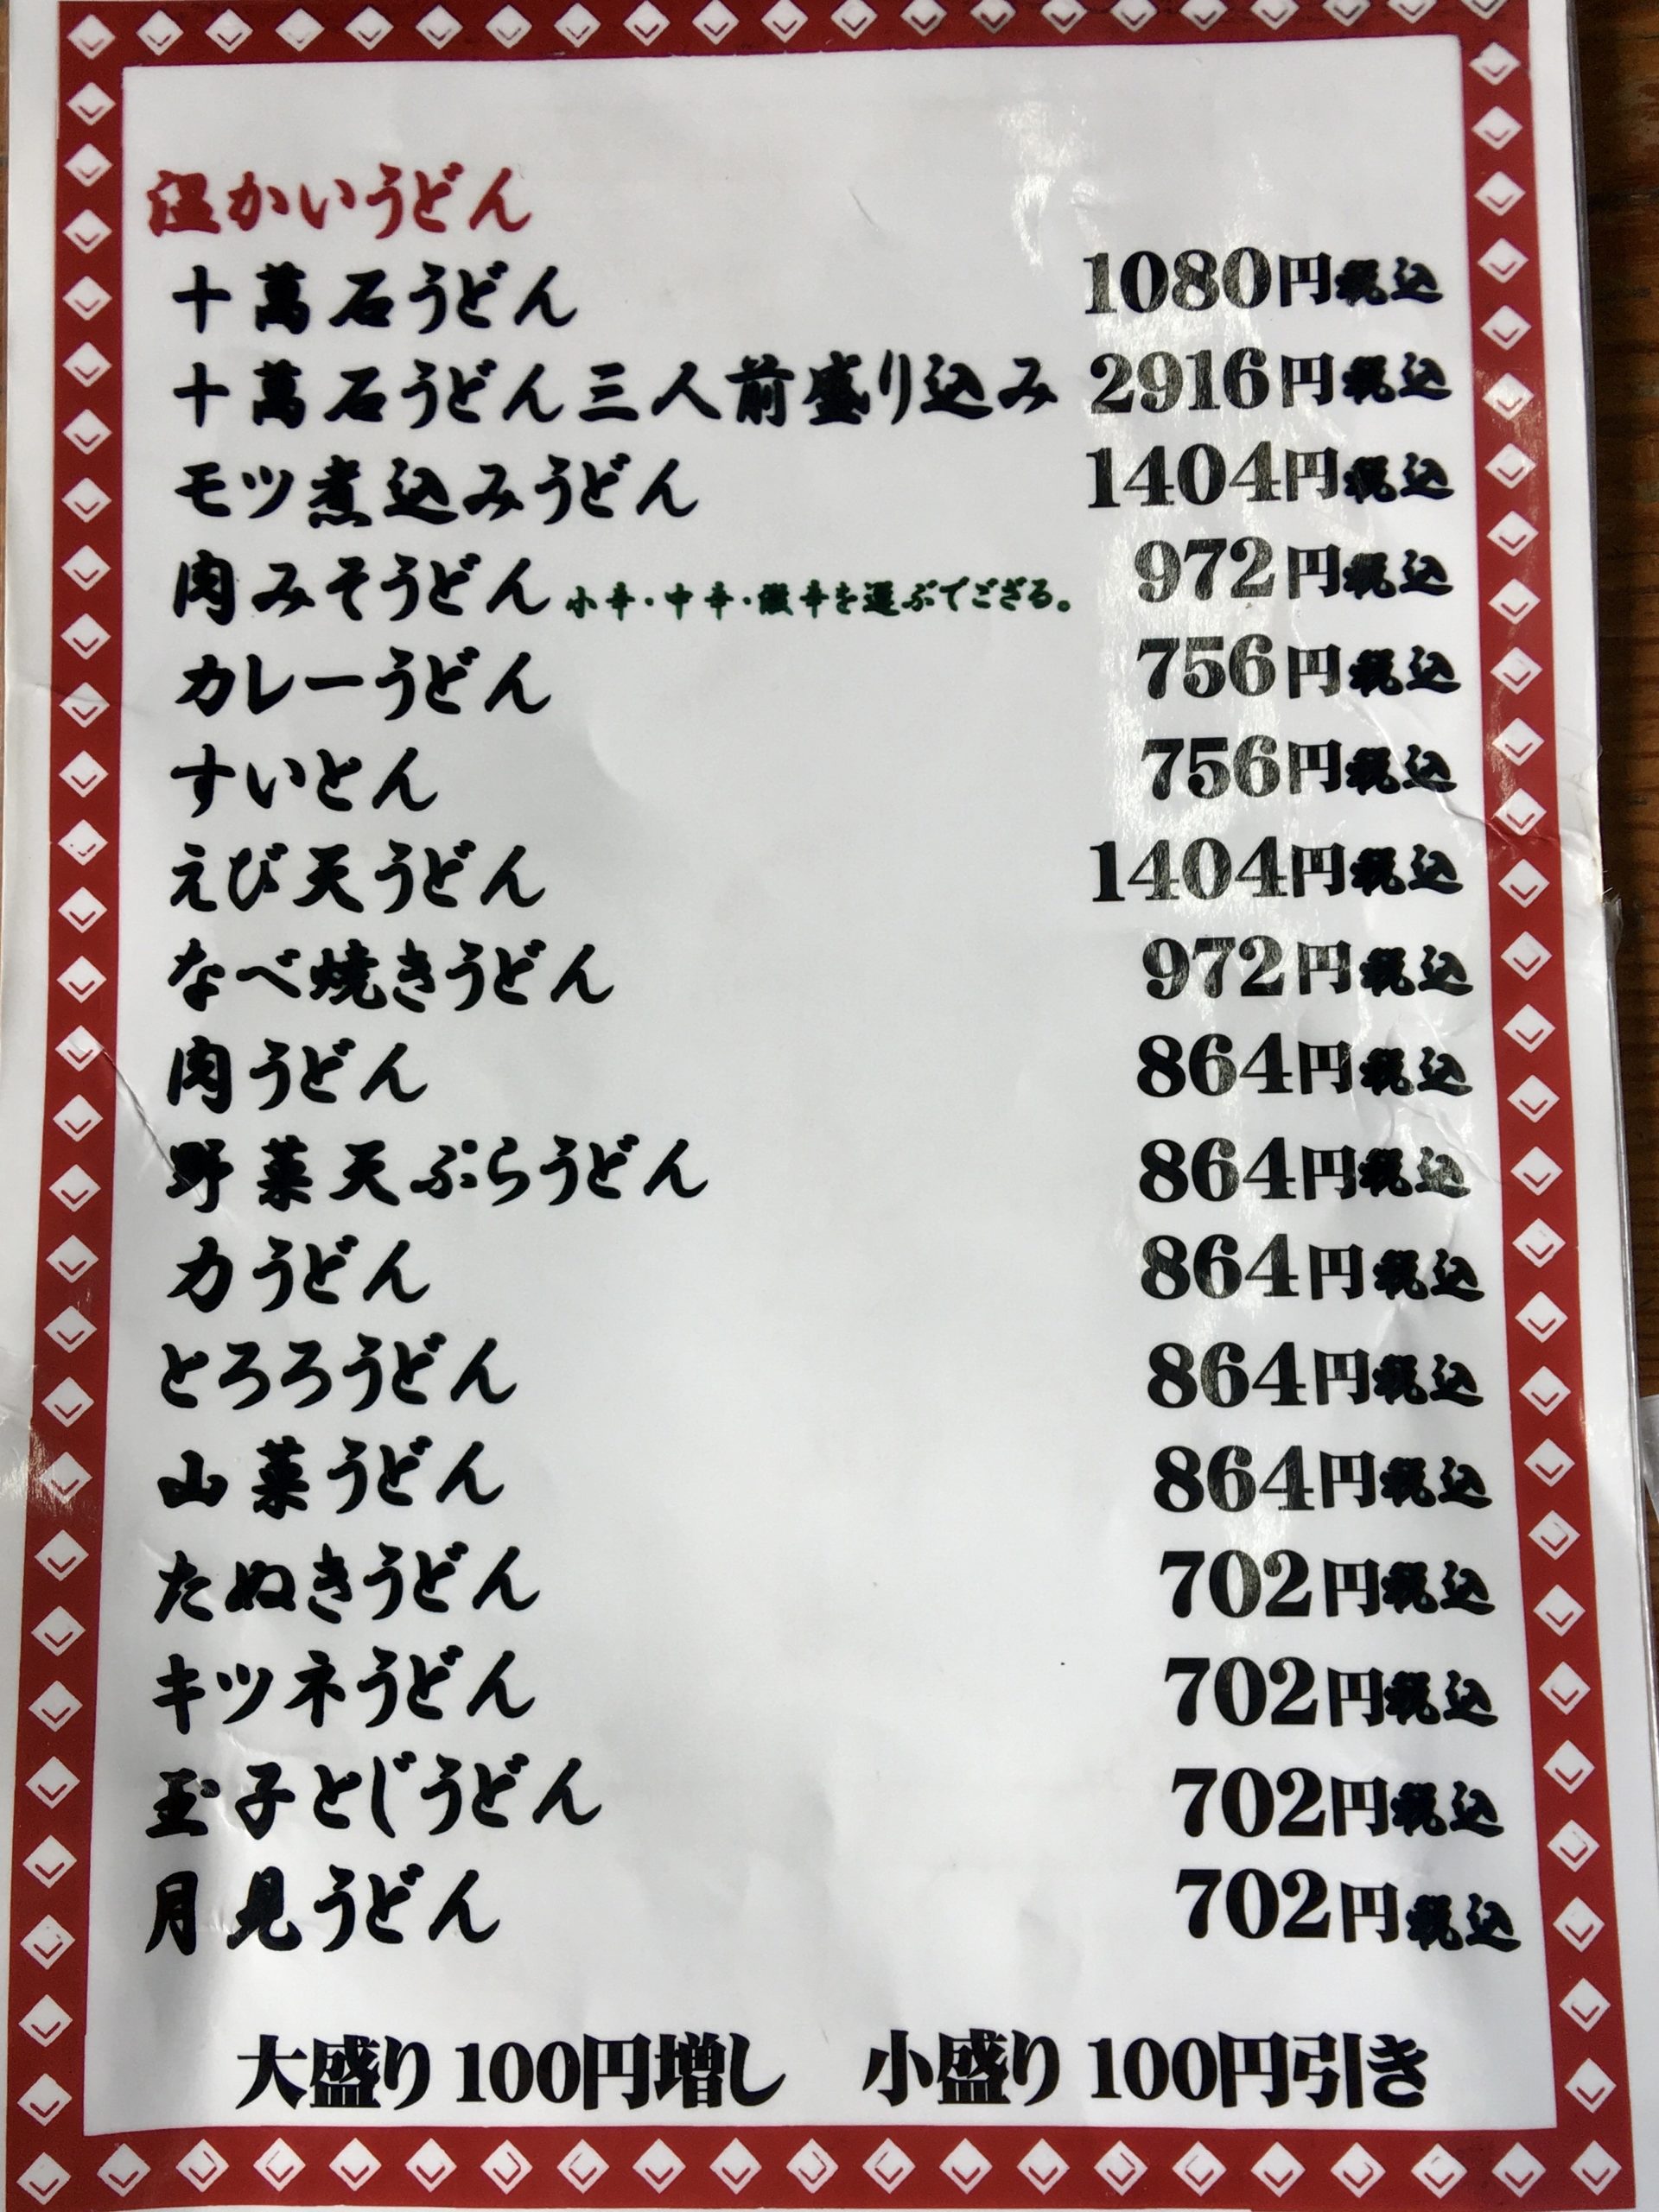 温かいうどん
十萬石うどん 1080円税込
十萬石うどん三人前盛り込み 2916円税込
モツ煮込みうどん 1404円税込
肉みそうどん 小辛・中辛・激辛を選ぶでござる。 972円税込
カレーうどん 756円税込
すいとん 756円税込
えび天うどん 1404円税込
なべ焼きうどん 972円税込
肉うどん 864円税込
野菜天ぷらうどん 864円税込
力うどん 864円税込
とろろうどん 864円税込
山菜うどん 864円税込
たぬきうどん 702円税込
キツネうどん 702円税込
玉子とじうどん 702円税込
月見うどん 702円税込
大盛り100円増し 小盛り100円引き